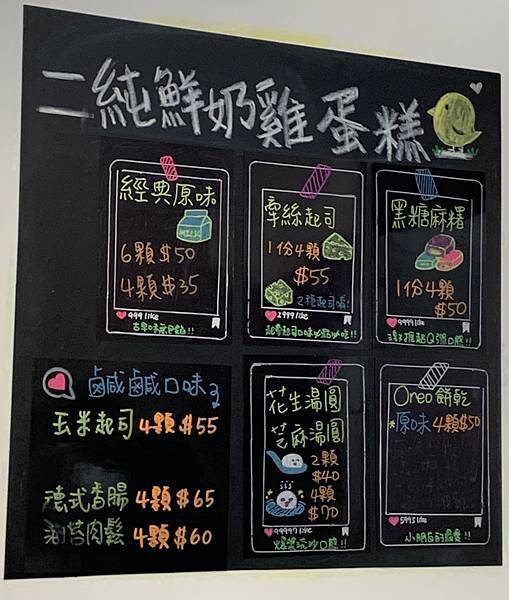 二純鮮奶雞蛋糕
經典原味
MILK
6顆$50
4顆$35
999 like
古早味無內餡!!
牽絲起司
1份4顆
$55
2種起司喔!
2999 like
起司口味必點必吃!!
黑糖麻糬
1份4顆
$50
9999 like
鹹鹹口味
玉米起司 4顆$55
德式香腸 4顆$65
海苔肉鬆 4顆$60
花生湯圓
芝麻湯圓
2顆
$40
4顆
$70
99997 like
爆漿流沙口感!!
Oreo餅乾
*原味 4顆$50
5993 like
小朋友的最愛!!